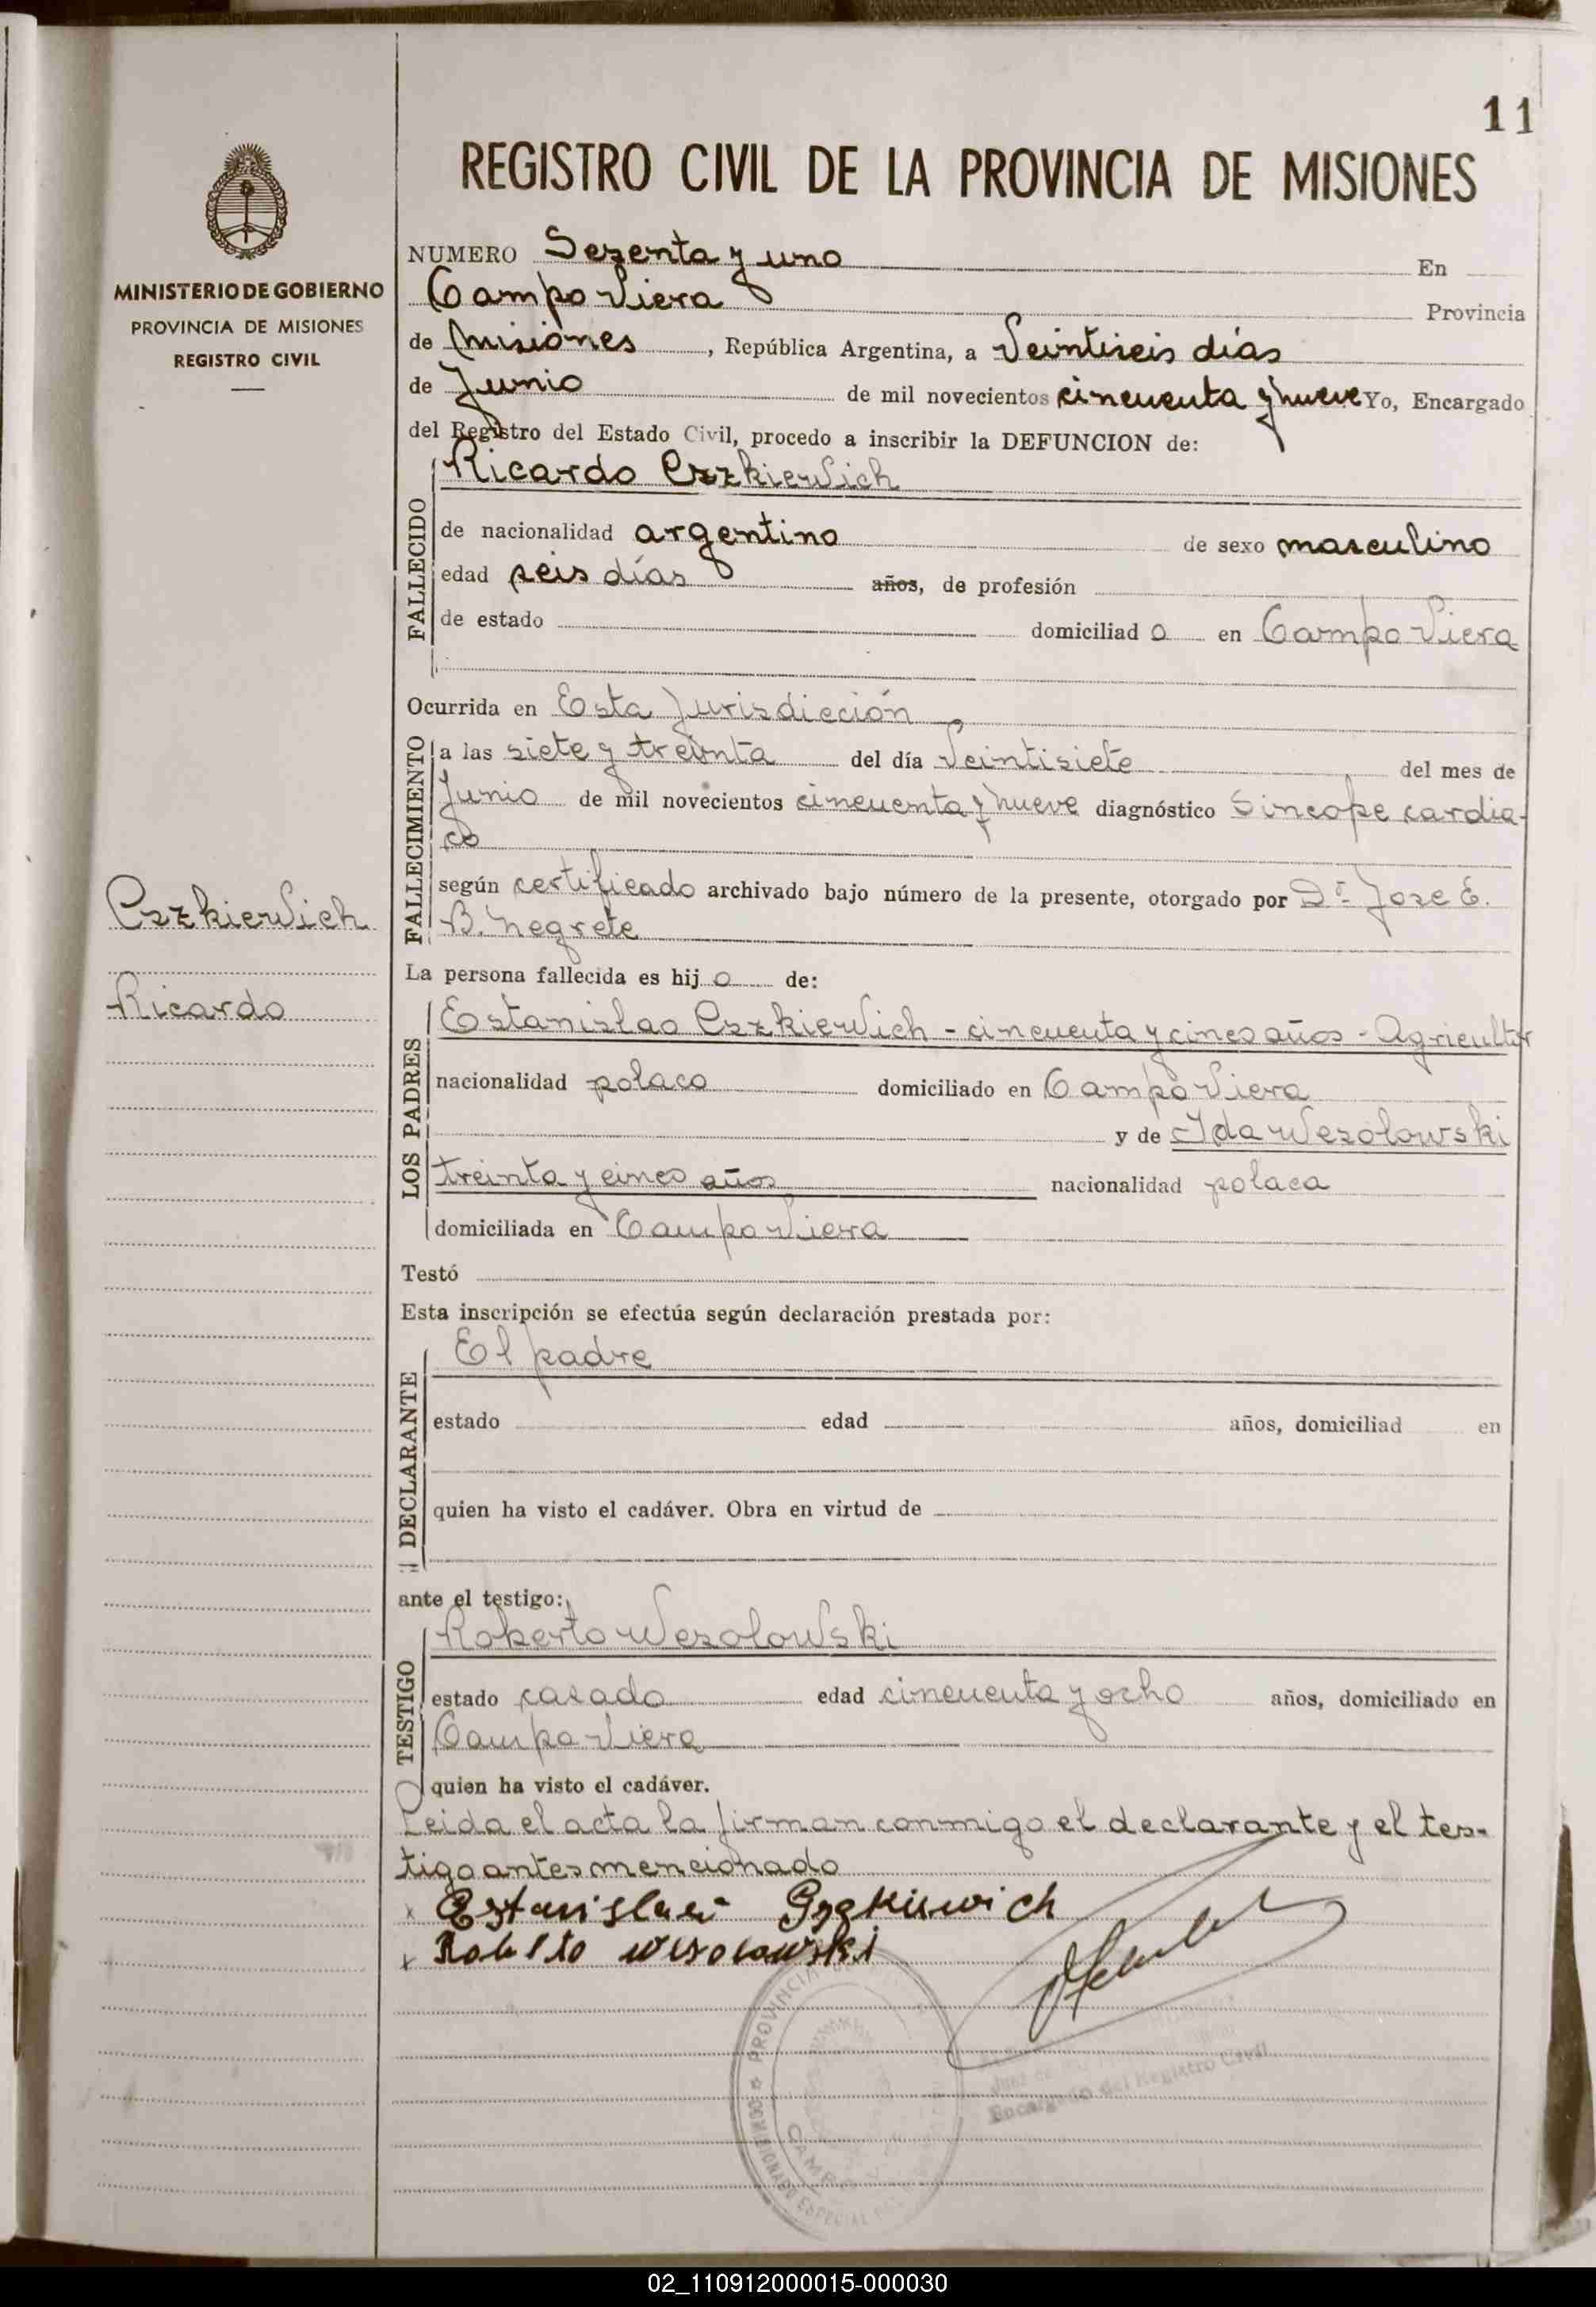 11
REGISTRO CIVIL DE LA PROVINCIA DE MISIONES
MINISTERIO DE GOBIERNO
PROVINCIA DE MISIONES
REGISTRO CIVIL
NUMERO Sesenta y uno En
Campo Viera Provincia
de Misiones, República Argentina, a Veintiseis días
de Junio de mil novecientos cincuenta y nueve Yo, Encargado
del Registro del Estado Civil, procedo a inscribir la DEFUNCION de:
FALLECIDO
Ricardo Cszkiewich
de nacionalidad argentino de sexo masculino
edad seis días años, de profesión
de estado domiciliad o en Campo Viera
Ocurrida en Esta Jurisdicción
FALLECIMIENTO
a las siete y treinta del día Veintisiete del mes de
Junio de mil novecientos cincuenta y nueve diagnóstico Sincope cardia-
co
según certificado archivado bajo número de la presente, otorgado por Dr. Jose E.
B. Negrete
Cszkiewich
Ricardo
La persona fallecida es hij o de:
LOS PADRES
Estanislao Cszkiewich - cincuenta y cinco años - Agricultor
nacionalidad polaco domiciliado en Campo Viera
y de Ida Wesolowski
treinta y cinco años nacionalidad polaca
domiciliada en Campo Viera
Testó
Esta inscripción se efectúa según declaración prestada por:
DECLARANTE
El padre
estado edad años, domiciliad en
quien ha visto el cadáver. Obra en virtud de
ante el testigo:
TESTIGO
Roberto Wesolowski
estado casado edad cincuenta y ocho años, domiciliado en
Campo Viera
quien ha visto el cadáver.
Leida el acta la firman conmigo el declarante y el tes-
tigo antes mencionado
x
x
PROVINCIA
COMISIONADO ESPECIAL
Encargado del Registro Civil
02_110912000015-000030